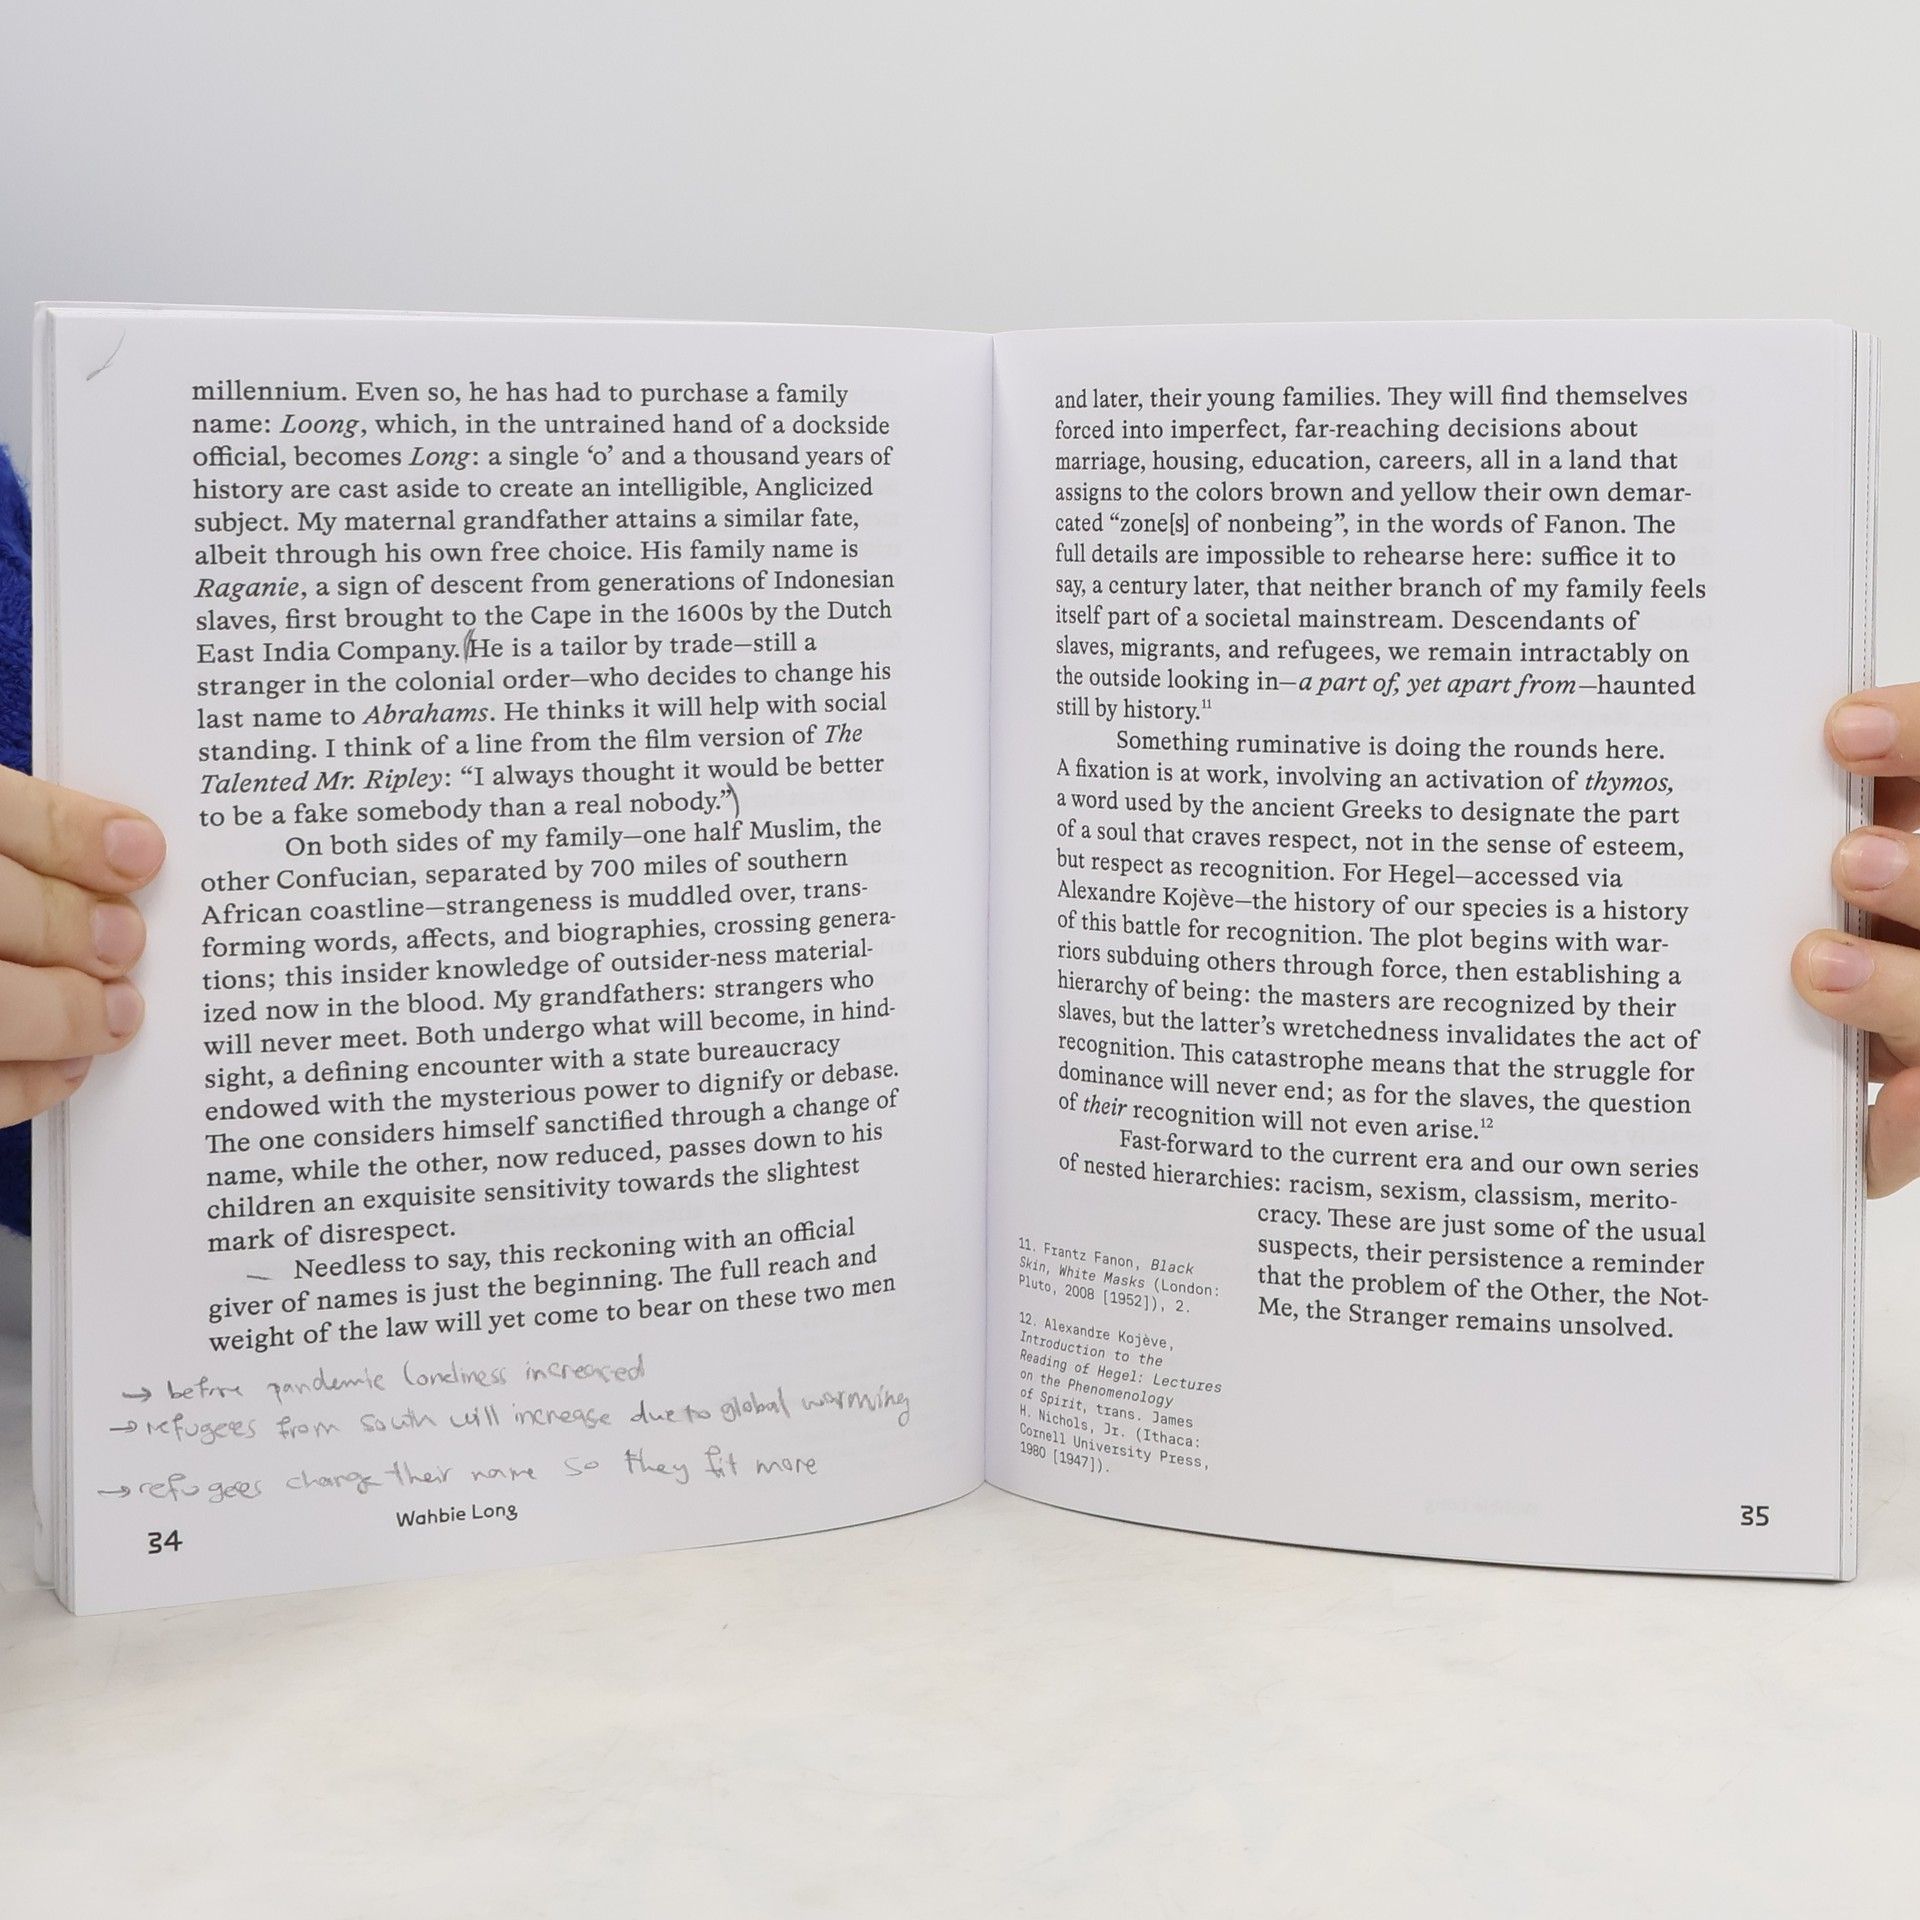 millennium. Even so, he has had to purchase a family
name: Loong, which, in the untrained hand of a dockside
official, becomes Long: a single ‘o’ and a thousand years of
history are cast aside to create an intelligible, Anglicized
subject. My maternal grandfather attains a similar fate,
albeit through his own free choice. His family name is
Raganie, a sign of descent from generations of Indonesian
slaves, first brought to the Cape in the 1600s by the Dutch
East India Company. (He is a tailor by trade—still a
stranger in the colonial order—who decides to change his
last name to Abrahams. He thinks it will help with social
standing. I think of a line from the film version of The
Talented Mr. Ripley: “I always thought it would be better
to be a fake somebody than a real nobody.”)
On both sides of my family—one half Muslim, the
other Confucian, separated by 700 miles of southern
African coastline—strangeness is muddled over, trans-
forming words, affects, and biographies, crossing genera-
tions; this insider knowledge of outsider-ness material-
ized now in the blood. My grandfathers: strangers who
will never meet. Both undergo what will become, in hind-
sight, a defining encounter with a state bureaucracy
endowed with the mysterious power to dignify or debase.
The one considers himself sanctified through a change of
name, while the other, now reduced, passes down to his
children an exquisite sensitivity towards the slightest
mark of disrespect.
Needless to say, this reckoning with an official
giver of names is just the beginning. The full reach and
weight of the law will yet come to bear on these two men
→ before pandemic loneliness increased
→ refugees from south will increase due to global warming
→ refugees change their name so they fit more
Wahbie Long
34
and later, their young families. They will find themselves
forced into imperfect, far-reaching decisions about
marriage, housing, education, careers, all in a land that
assigns to the colors brown and yellow their own demar-
cated “zone[s] of nonbeing”, in the words of Fanon. The
full details are impossible to rehearse here: suffice it to
say, a century later, that neither branch of my family feels
itself part of a societal mainstream. Descendants of
slaves, migrants, and refugees, we remain intractably on
the outside looking in—a part of, yet apart from—haunted
still by history.11
Something ruminative is doing the rounds here.
A fixation is at work, involving an activation of thymos,
a word used by the ancient Greeks to designate the part
of a soul that craves respect, not in the sense of esteem,
but respect as recognition. For Hegel—accessed via
Alexandre Kojève—the history of our species is a history
of this battle for recognition. The plot begins with war-
riors subduing others through force, then establishing a
hierarchy of being: the masters are recognized by their
slaves, but the latter’s wretchedness invalidates the act of
recognition. This catastrophe means that the struggle for
dominance will never end; as for the slaves, the question
of their recognition will not even arise.12
Fast-forward to the current era and our own series
of nested hierarchies: racism, sexism, classism, merito-
cracy. These are just some of the usual
suspects, their persistence a reminder
that the problem of the Other, the Not-
Me, the Stranger remains unsolved.
11. Frantz Fanon, Black
Skin, White Masks (London:
Pluto, 2008 [1952]), 2.
12. Alexandre Kojève,
Introduction to the
Reading of Hegel: Lectures
on the Phenomenology
of Spirit, trans. James
H. Nichols, Jr. (Ithaca:
Cornell University Press,
1980 [1947]).
35